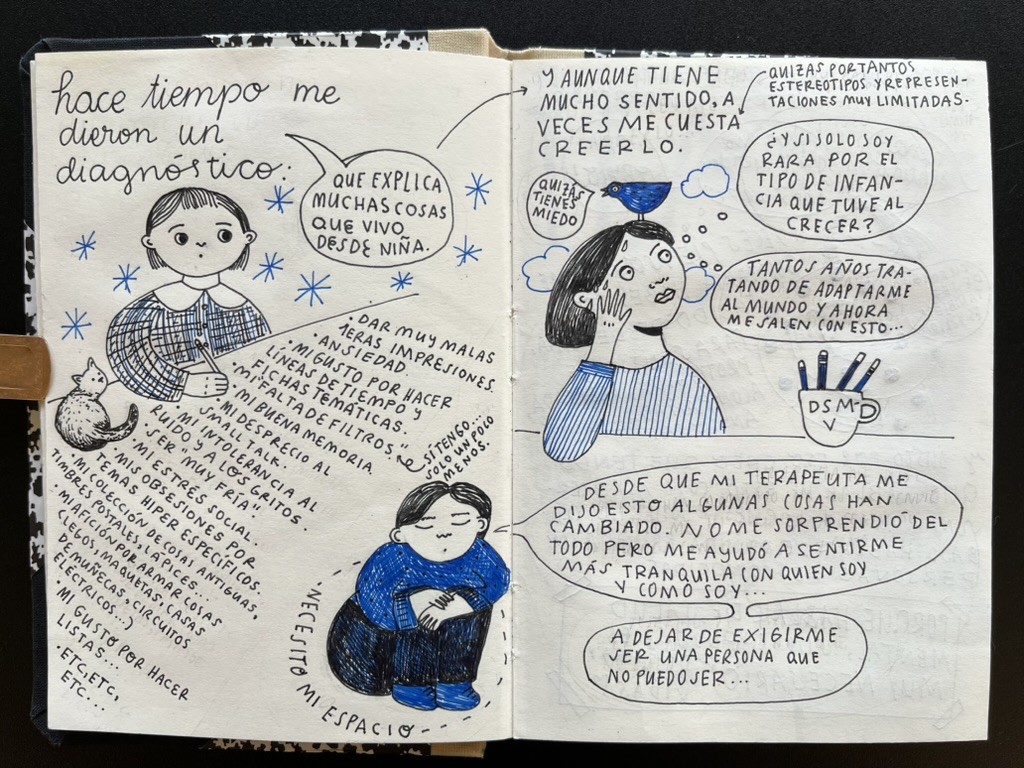 hace tiempo me
dieron un
diagnóstico:
QUE EXPLICA
MUCHAS COSAS
QUE VIVO
DESDE NIÑA.
• DAR MUY MALAS
1ERAS IMPRESIONES.
• ANSIEDAD.
• MI GUSTO POR HACER
LÍNEAS DE TIEMPO Y
FICHAS TEMÁTICAS.
• MI "FALTA DE FILTROS".
SI TENGO...
SOLO UN POCO
MENOS.
• MI BUENA MEMORIA
• MI DESPRECIO AL
SMALL TALK.
• MI INTOLERANCIA AL
RUIDO Y A LOS GRITOS.
• SER "MUY FRÍA".
• MI ESTRÉS SOCIAL.
• MIS OBSESIONES POR
TEMAS HIPER ESPECÍFICOS.
• MI COLECCIÓN DE COSAS ANTIGUAS,
TIMBRES POSTALES, LÁPICES...
• MI AFICIÓN POR ARMAR COSAS
(LEGOS, MAQUETAS, CASAS
DE MUÑECAS, CIRCUITOS
ELÉCTRICOS...)
• MI GUSTO POR HACER
LISTAS...
• ETC, ETC,
ETC...
NECESITO MI ESPACIO
Y AUNQUE TIENE
MUCHO SENTIDO, A
VECES ME CUESTA
CREERLO.
QUIZAS POR TANTOS
ESTEREOTIPOS Y REPRESEN-
TACIONES MUY LIMITADAS.
QUIZÁS
TIENES
MIEDO
¿Y SI SOLO SOY
RARA POR EL
TIPO DE INFAN-
CIA QUE TUVE AL
CRECER?
TANTOS AÑOS TRA-
TANDO DE ADAPTARME
AL MUNDO Y AHORA
ME SALEN CON ESTO...
DSM-
V
DESDE QUE MI TERAPEUTA ME
DIJO ESTO ALGUNAS COSAS HAN
CAMBIADO. NO ME SORPRENDIÓ DEL
TODO PERO ME AYUDÓ A SENTIRME
MÁS TRANQUILA CON QUIEN SOY
Y COMO SOY...
A DEJAR DE EXIGIRME
SER UNA PERSONA QUE
NO PUEDO SER...